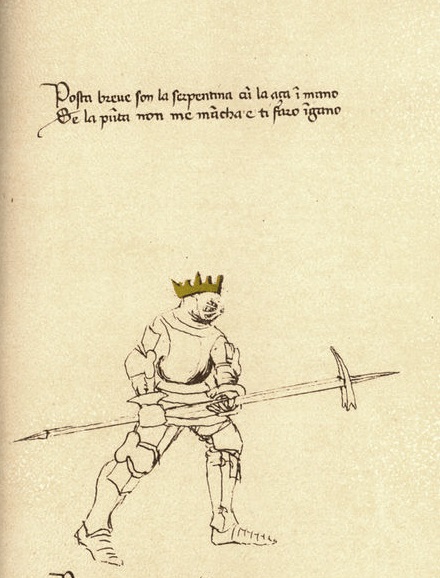 Posta breue son la serpentina cū la aça ī mano
Se la pūta non me mācha e ti faro īgano